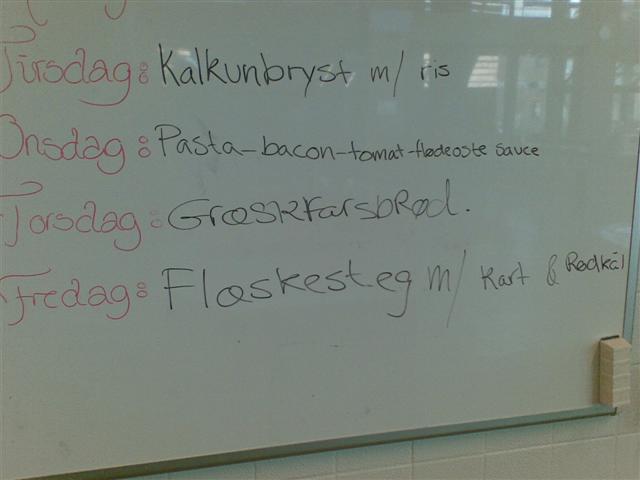 Tirsdag: Kalkunbryst m/ ris
Onsdag: Pasta-bacon-tomat-flødeoste sauce
Torsdag: Græskfarsbrød.
Fredag: Flæskesteg m/ Kart & Rødkål